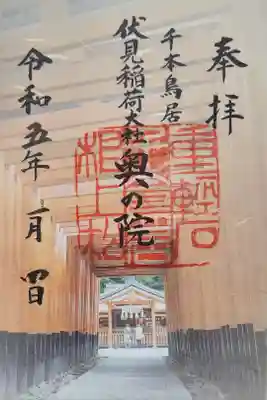 奉拝
千本鳥居
伏見稲荷大社
奥の院
令和五年 月四日
重軽石